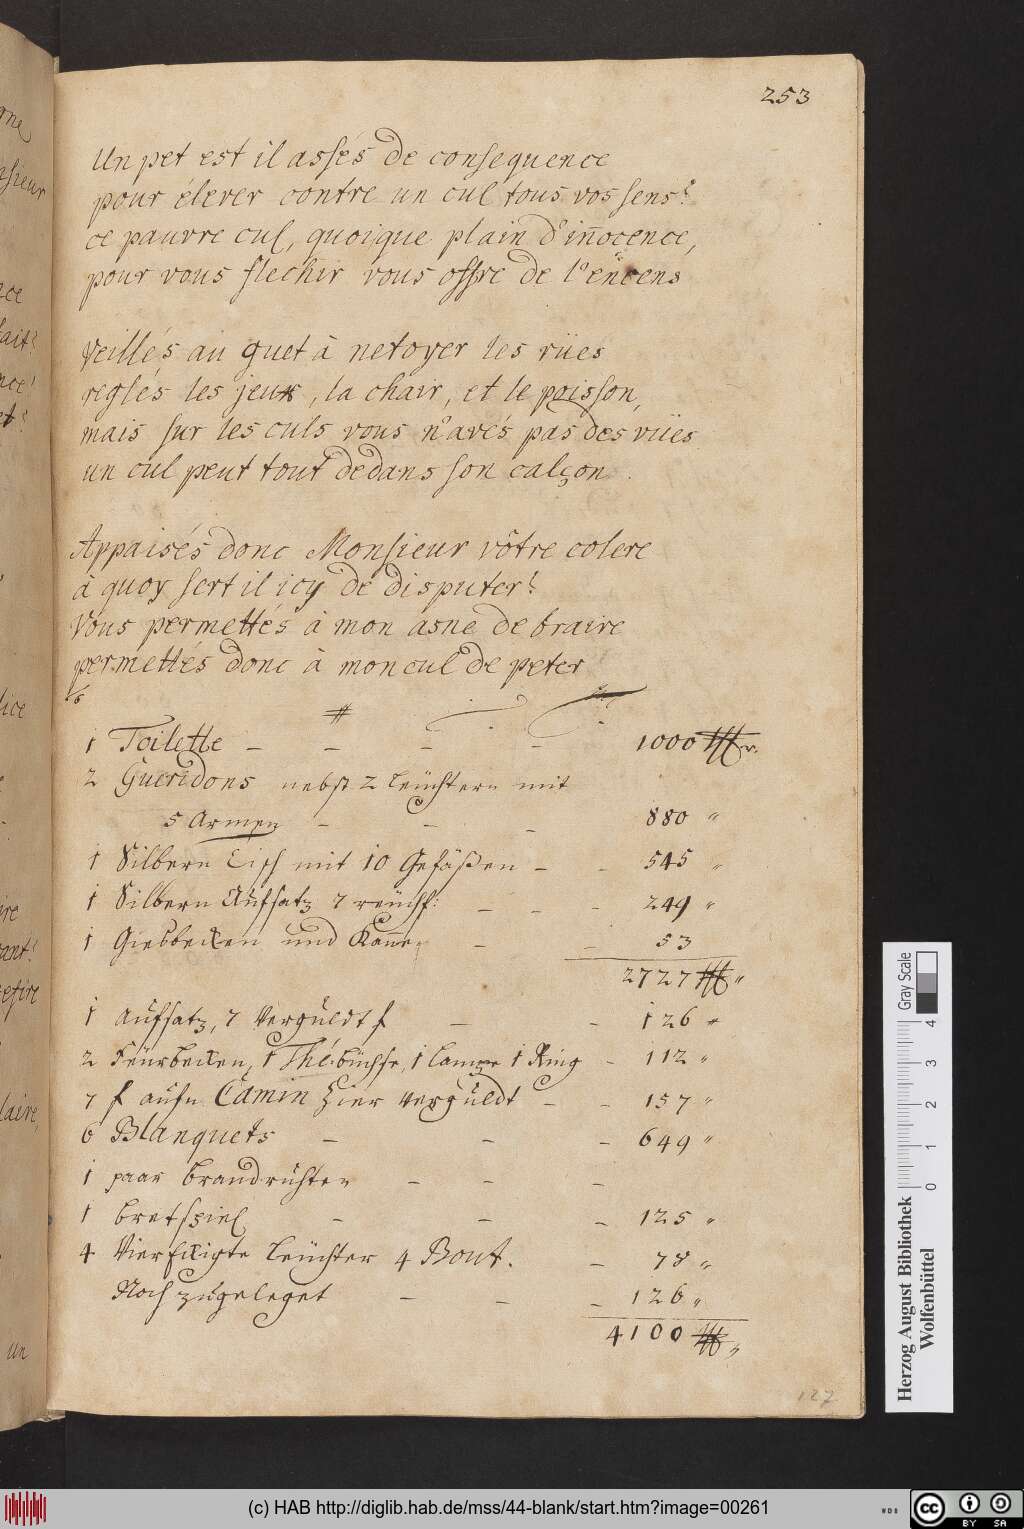 253
Un pet est il assés de consequence
pour élever contre un cul tous vos sens?
ce pauvre cul, quoique plain d'iñocence,
pour vous flechir vous offre de l'encens
Veillés au guet à netoyer les rües
reglés les jeux, la chair, et le poisson,
mais sur les culs vous n'avés pas des vües
un cul peut tout dedans son calçon.
Appaisés donc Monsieur vôtre colere
à quoy sert il icy de disputer?
Vous permettés à mon asne de braire
permettés donc à mon cul de peter
1 Toilette – – – – 1000
2 Gueridons nebst 2 leüchtern mit
5 Armen – – – 880 "
1 Silbern Tisch mit 10 Gefäßen – – 545 "
1 Silbern Aufsatz 7 – – – 249 "
1 Giesbecken und Kañe – – 53
2727 "
1 Aufsatz, 7 Vergüldt – – 126 "
2 Feürbecken, 1 Thé büchse, 1 lampe 1 Ring – 112 "
7 aufn Camin Zier vergüldt – – 157 "
6 Blanquets – – – 649 "
1 paar brandrüthen – – –
1 bretspiel – – – 125 "
4 Viereckigte leüchter 4 Bout. – 78 "
Noch zugeleget – – – 126 "
4100 "
127
Herzog August Bibliothek
Wolfenbüttel
Gray Scale
0 1 2 3 4
(c) HAB http://diglib.hab.de/mss/44-blank/start.htm?image=00261
WDB
cc BY SA